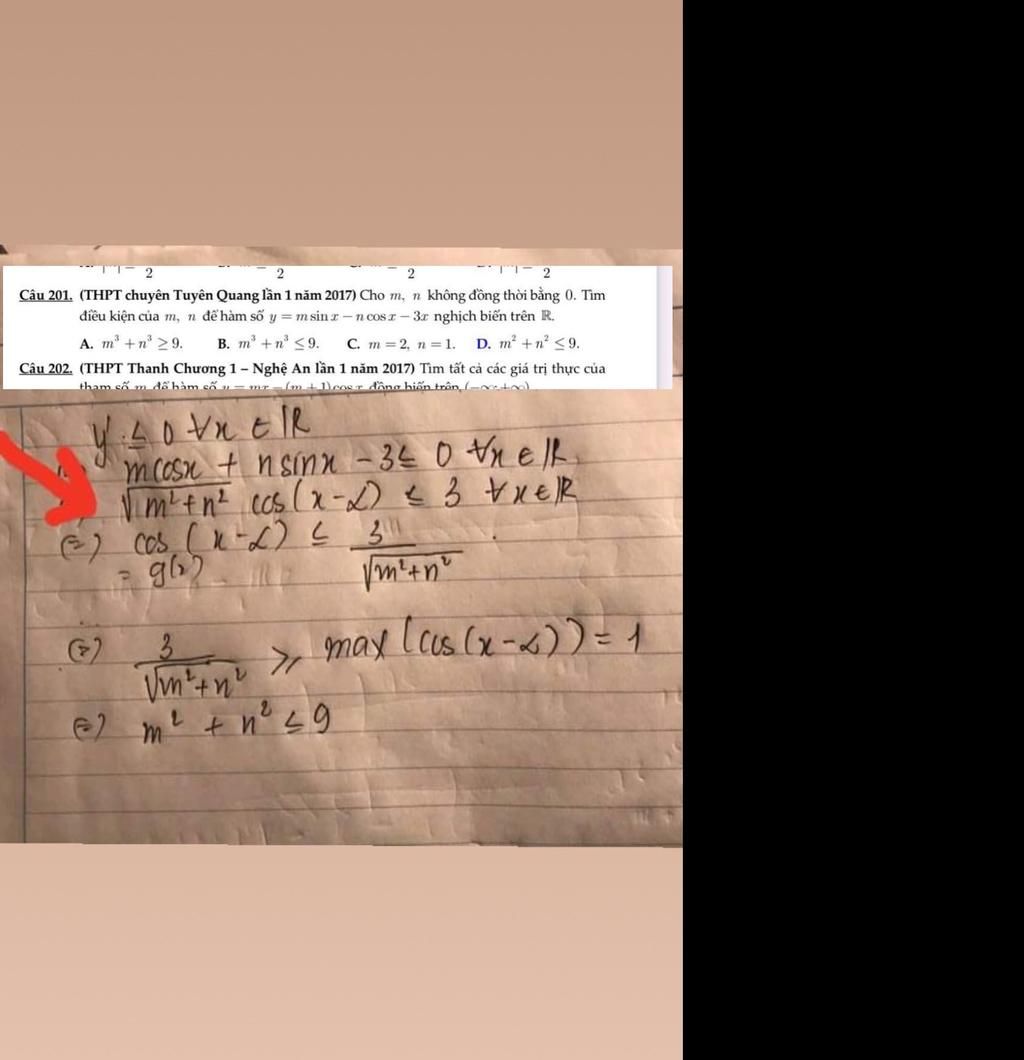 2 2 2 2
Câu 201. (THPT chuyên Tuyên Quang lần 1 năm 2017) Cho m, n không đồng thời bằng 0. Tìm
điều kiện của m, n để hàm số y = m sin x − n cos x − 3x nghịch biến trên ℝ.
A. m³ + n³ ≥ 9. B. m³ + n³ ≤ 9. C. m = 2, n = 1. D. m² + n² ≤ 9.
Câu 202. (THPT Thanh Chương 1 – Nghệ An lần 1 năm 2017) Tìm tất cả các giá trị thực của
tham số m để hàm số y = mx − (m + 1) cos x đồng biến trên (−∞; +∞)
y' ≤ 0 ∀x ∈ ℝ
m cosx + n sinx − 3 ≤ 0 ∀x ∈ ℝ
√(m²+n²) cos(x−α) ≤ 3 ∀x ∈ ℝ
(=) cos (x−α) ≤ 3/√(m²+n²)
= g(x)
(=) 3/√(m²+n²) ≥ max (cos (x−α)) = 1
(=) m² + n² ≤ 9